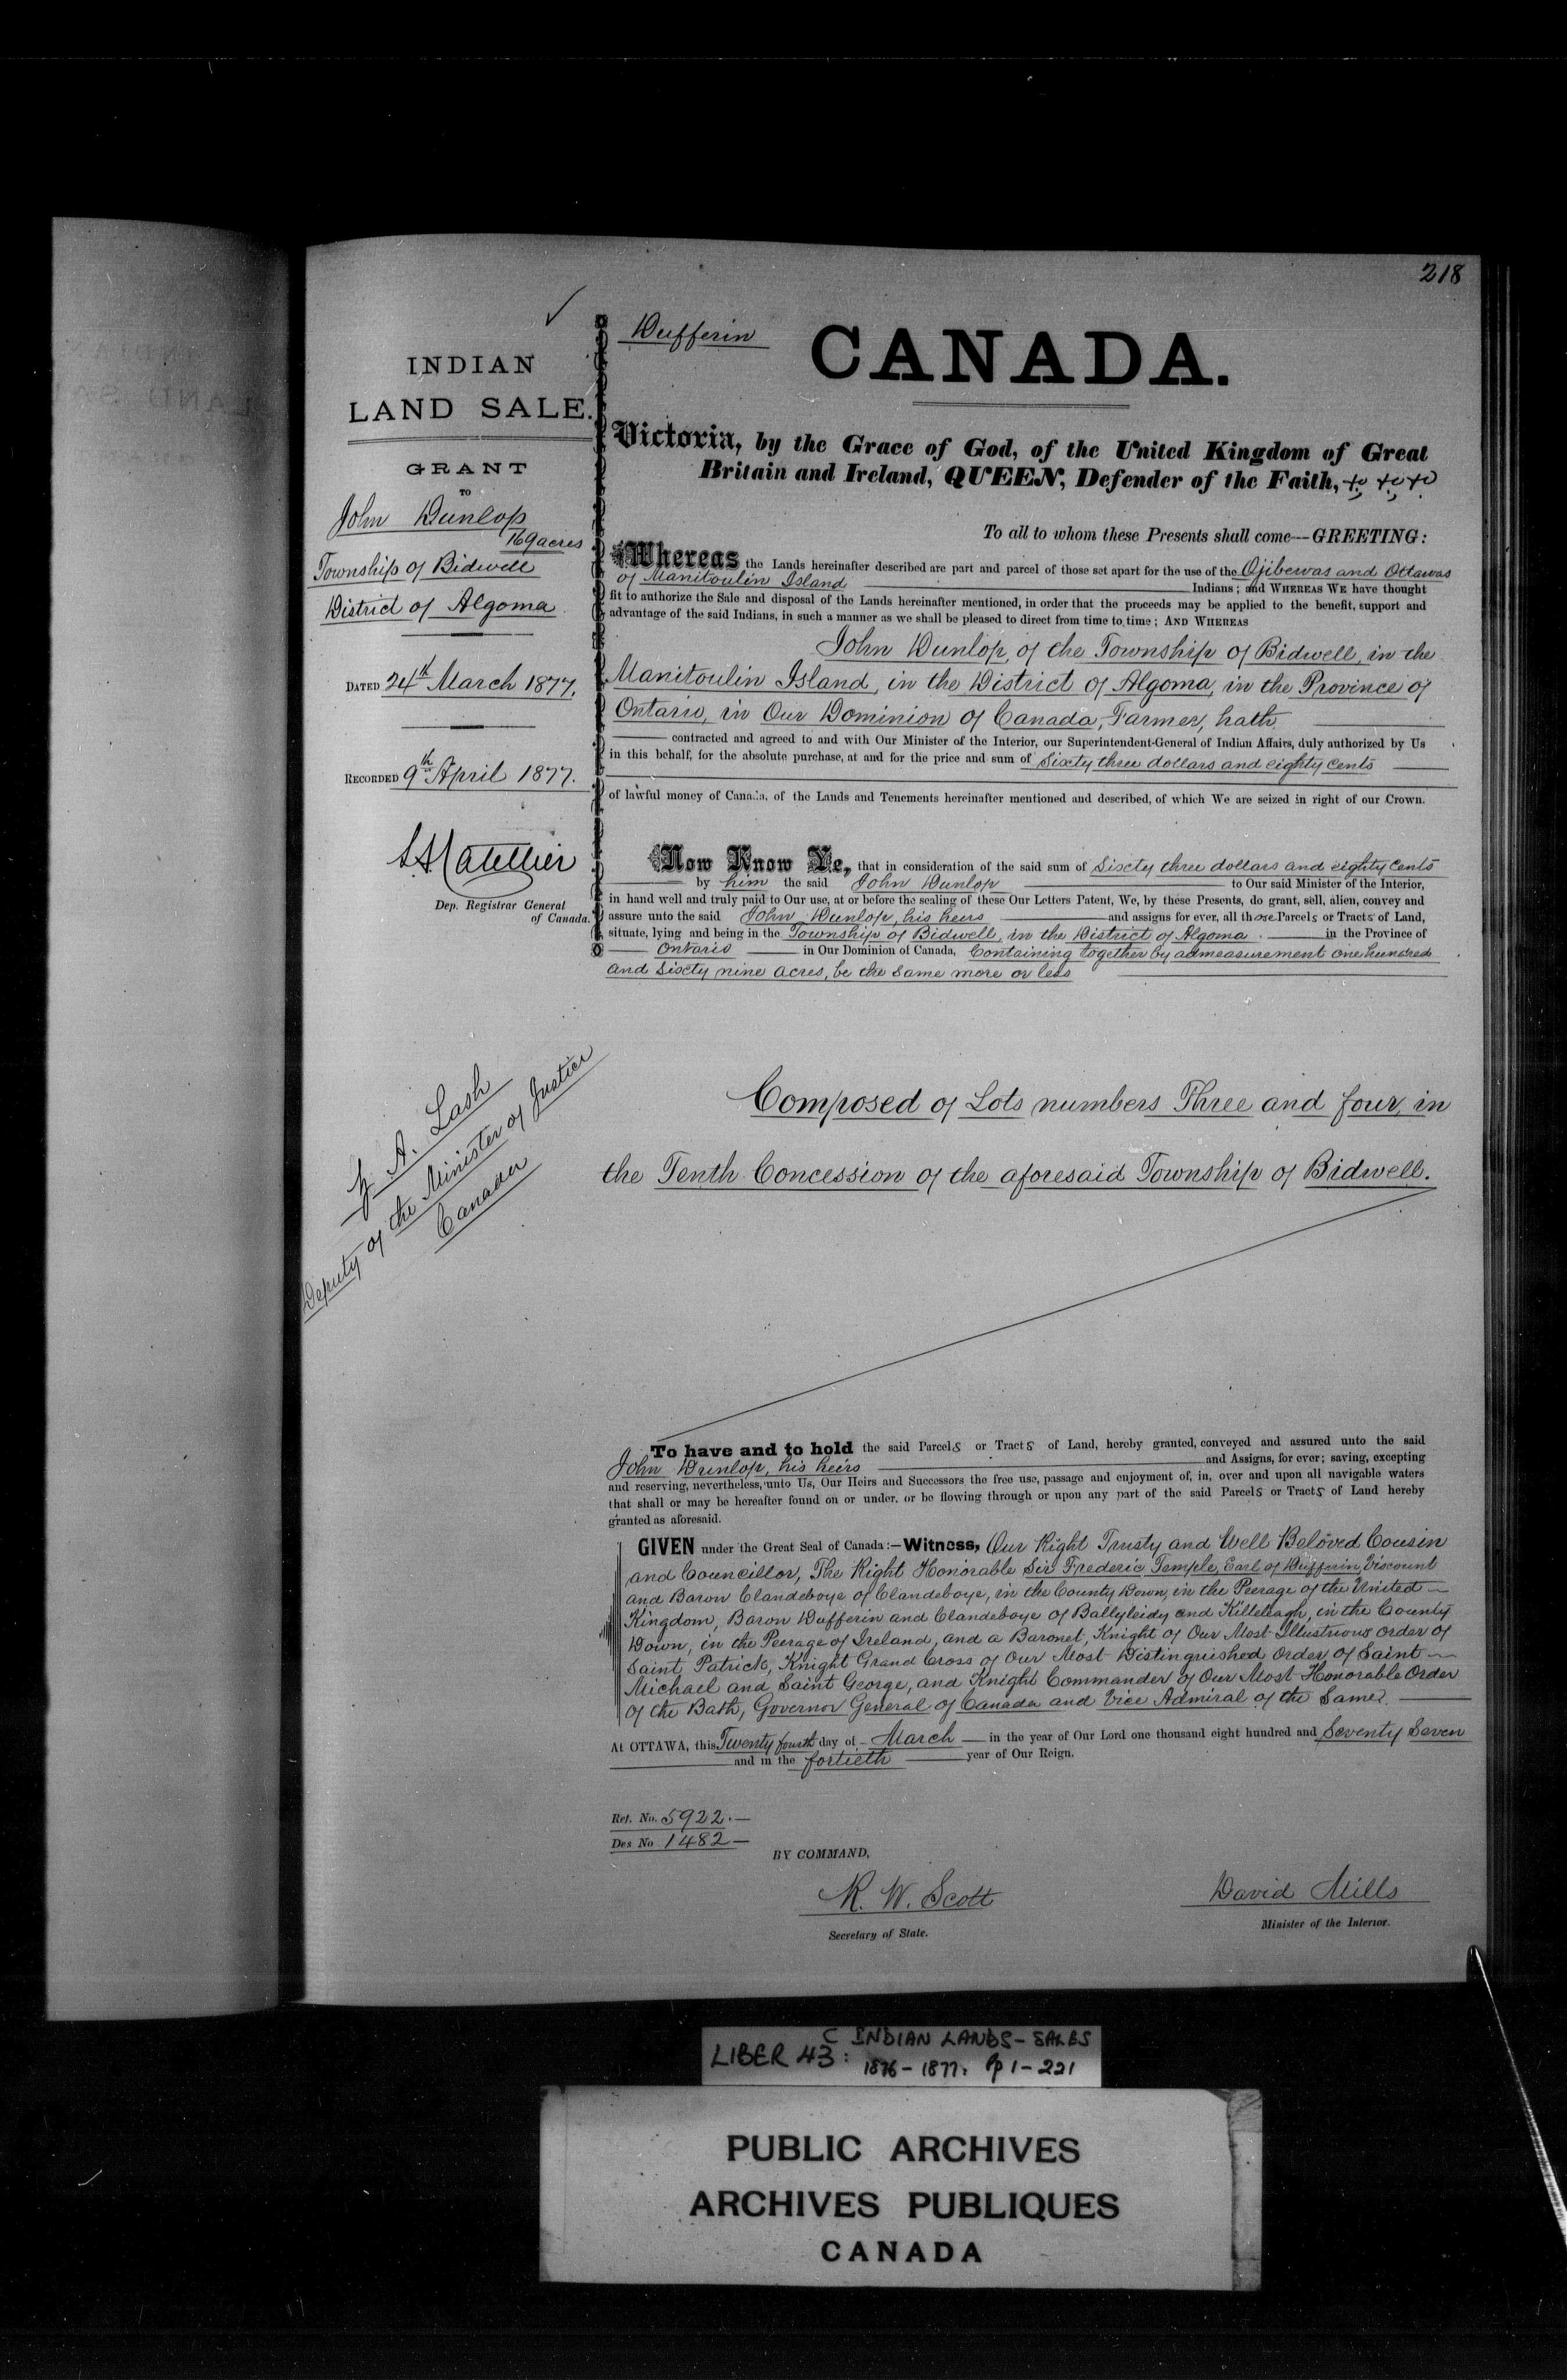 218
INDIAN
LAND SALE.
GRANT
TO
John Dunlop
169 acres
Township of Bidwell
District of Algoma
DATED 24th March 1877.
RECORDED 9th April 1877.
Dep. Registrar General
of Canada.
Z. A. Lash
Deputy of the Minister of Justice
Canada
Dufferin
CANADA.
Victoria, by the Grace of God, of the United Kingdom of Great
Britain and Ireland, QUEEN, Defender of the Faith, &c &c &c
To all to whom these Presents shall come---GREETING:
Whereas the Lands hereinafter described are part and parcel of those set apart for the use of the Ojibewas and Ottawas
of Manitoulin Island Indians; and WHEREAS WE have thought
fit to authorize the Sale and disposal of the Lands hereinafter mentioned, in order that the proceeds may be applied to the benefit, support and
advantage of the said Indians, in such a manner as we shall be pleased to direct from time to time; AND WHEREAS
John Dunlop, of the Township of Bidwell, in the
Manitoulin Island, in the District of Algoma, in the Province of
Ontario, in Our Dominion of Canada, Farmer, hath
contracted and agreed to and with Our Minister of the Interior, our Superintendent-General of Indian Affairs, duly authorized by Us
in this behalf, for the absolute purchase, at and for the price and sum of Sixty three dollars and eighty cents
of lawful money of Canada, of the Lands and Tenements hereinafter mentioned and described, of which We are seized in right of our Crown.
Now Know Ye, that in consideration of the said sum of Sixty three dollars and eighty cents
by him the said John Dunlop to Our said Minister of the Interior,
in hand well and truly paid to Our use, at or before the sealing of these Our Letters Patent, We, by these Presents, do grant, sell, alien, convey and
assure unto the said John Dunlop, his heirs and assigns for ever, all those Parcels or Tracts of Land,
situate, lying and being in the Township of Bidwell, in the District of Algoma. in the Province of
Ontario in Our Dominion of Canada, Containing together by admeasurement one hundred
and sixty nine acres, be the same more or less
Composed of Lots numbers Three and four, in
the Tenth Concession of the aforesaid Township of Bidwell.
To have and to hold the said Parcels or Tracts of Land, hereby granted, conveyed and assured unto the said
John Dunlop, his heirs and Assigns, for ever; saving, excepting
and reserving, nevertheless, unto Us, Our Heirs and Successors the free use, passage and enjoyment of, in, over and upon all navigable waters
that shall or may be hereafter found on or under, or be flowing through or upon any part of the said Parcels or Tracts of Land hereby
granted as aforesaid.
GIVEN under the Great Seal of Canada:—Witness, Our Right Trusty and Well Beloved Cousin
and Councillor, The Right Honorable Sir Frederic Temple, Earl of Dufferin, Viscount
and Baron Clandeboye of Clandeboye, in the County Down, in the Peerage of the United
Kingdom, Baron Dufferin and Clandeboye of Ballyleidy and Killeleagh, in the County
Down, in the Peerage of Ireland, and a Baronet, Knight of Our Most Illustrious Order of
Saint Patrick, Knight Grand Cross of Our Most Distinguished Order of Saint
Michael and Saint George, and Knight Commander of Our Most Honorable Order
of the Bath, Governor General of Canada and Vice Admiral of the Same.
At OTTAWA, this Twenty fourth day of March in the year of Our Lord one thousand eight hundred and Seventy Seven
and in the fortieth year of Our Reign.
Ref. No. 5922.
Des No 1482
BY COMMAND,
R. W. Scott
Secretary of State.
David Mills
Minister of the Interior.
LIBER 43: C INDIAN LANDS-SALES
1876-1877. pp 1-221
PUBLIC ARCHIVES
ARCHIVES PUBLIQUES
CANADA